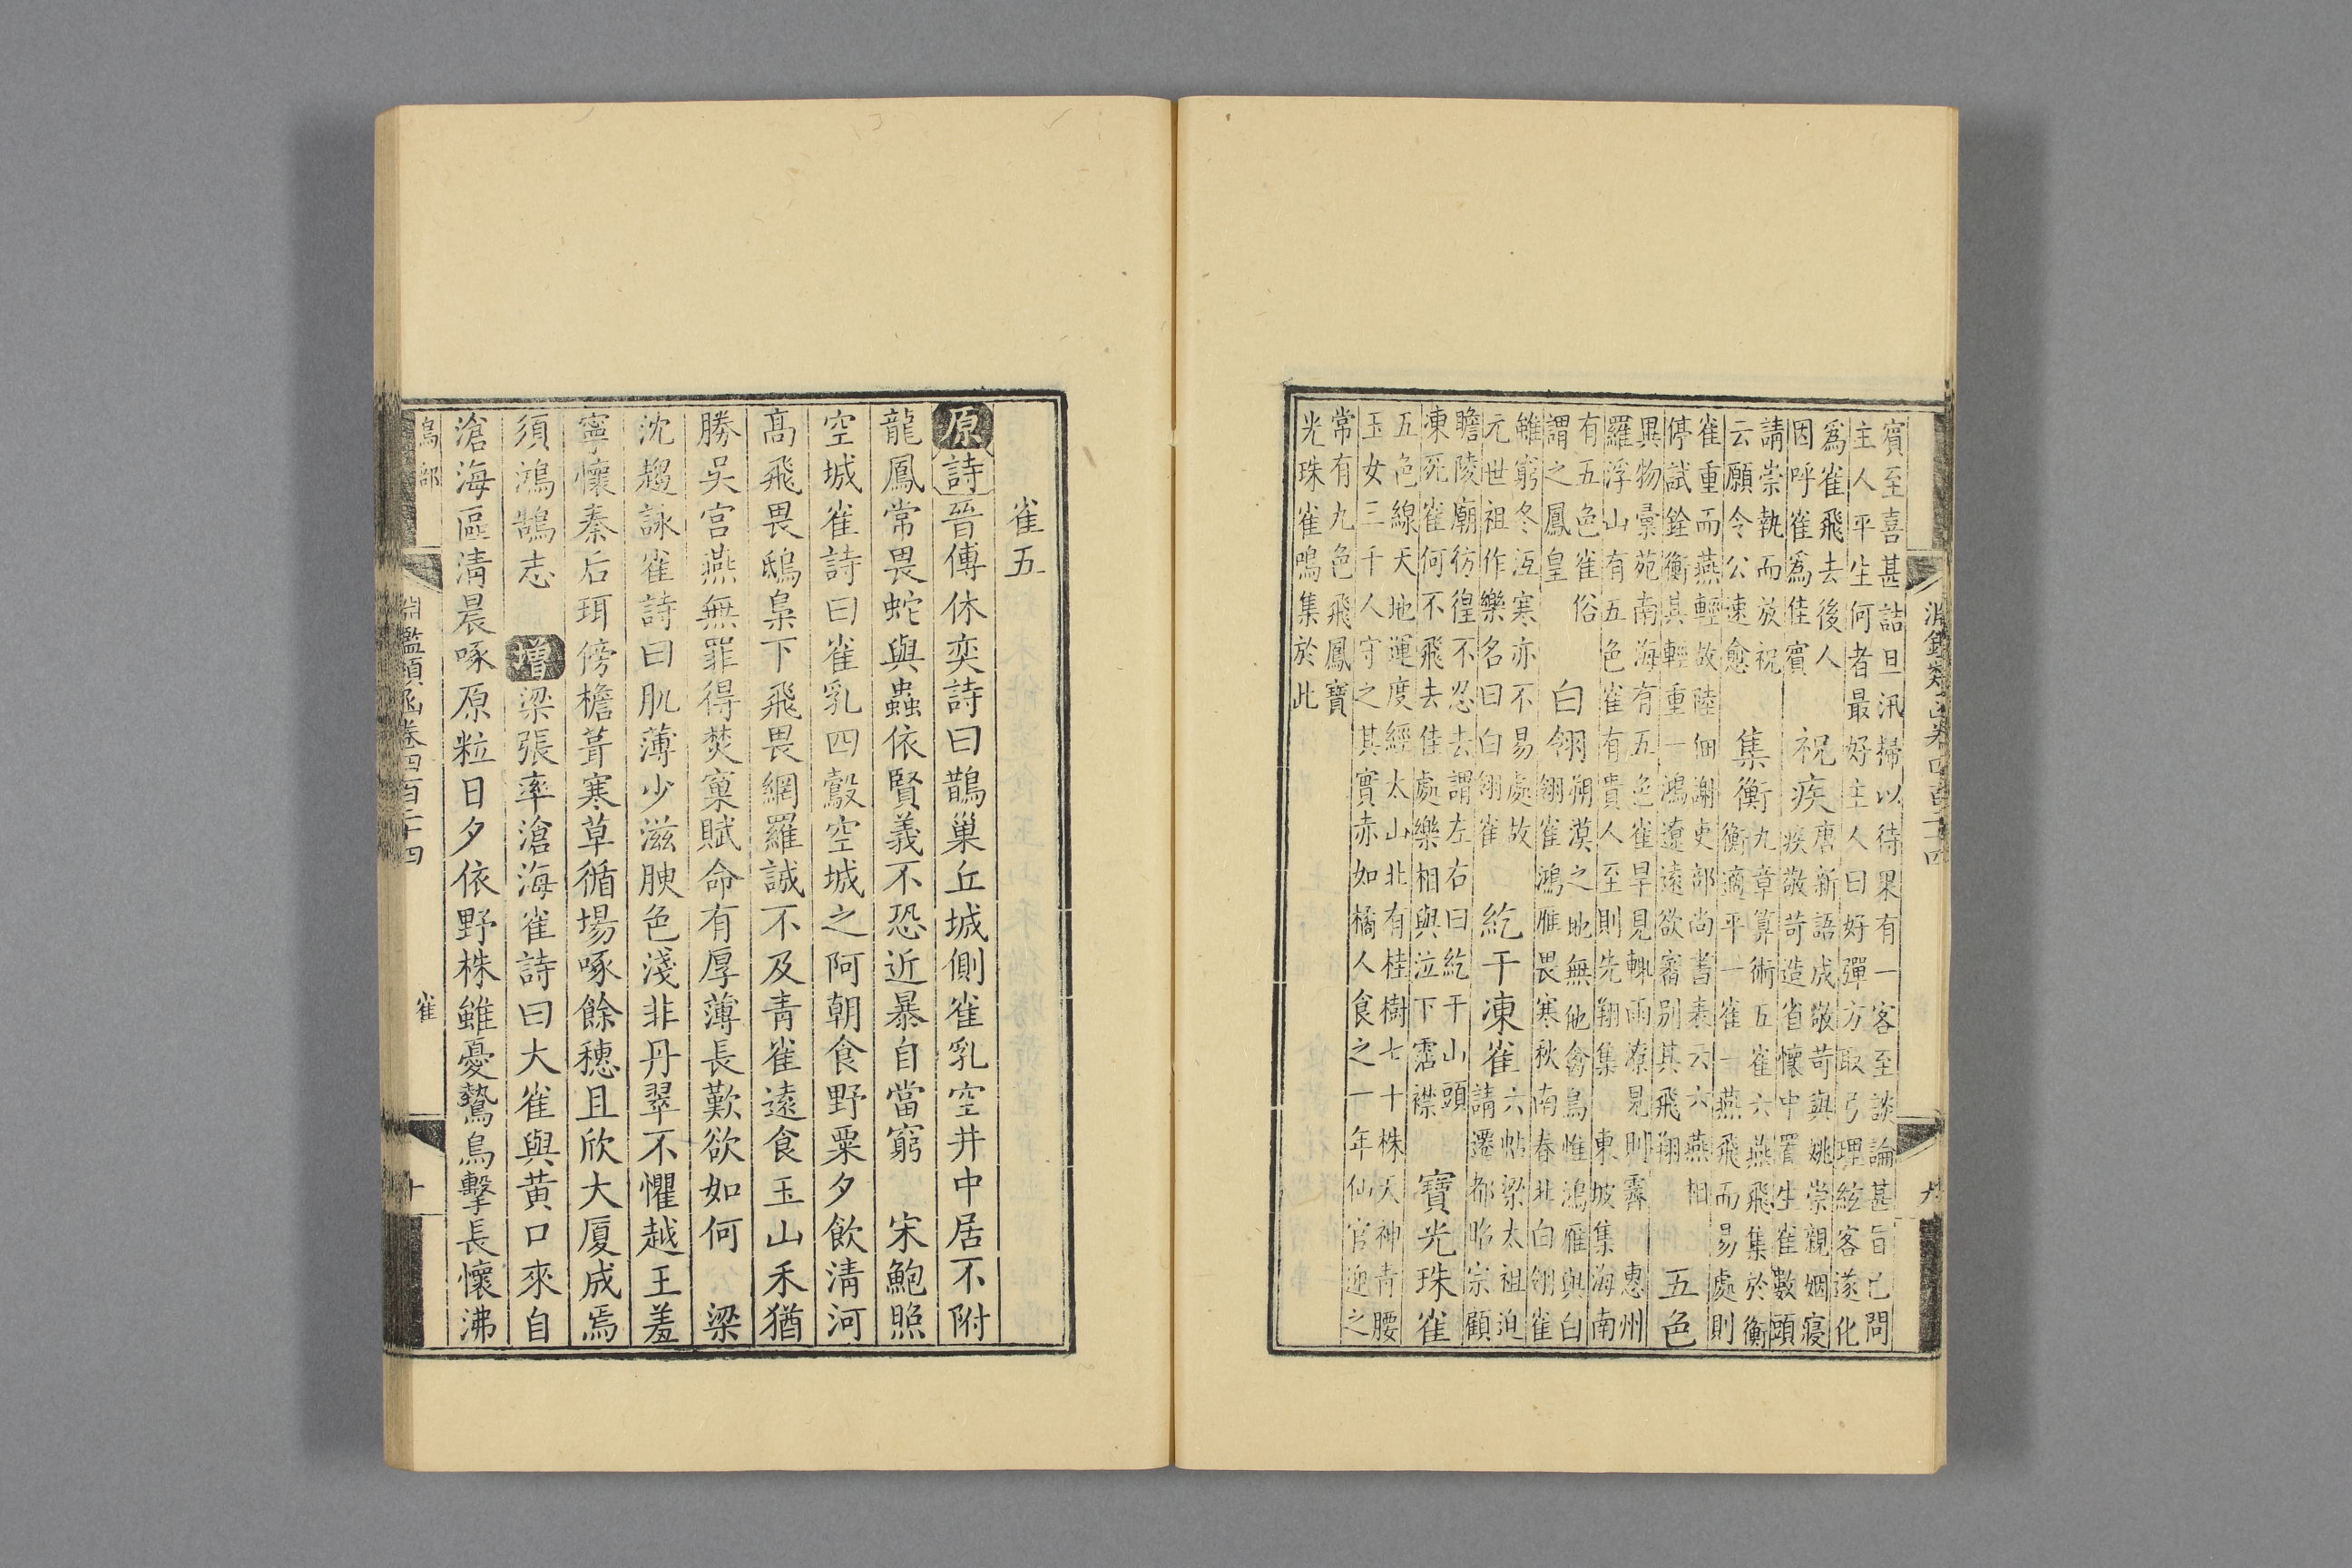 淵鑑類函卷四百二十四　九
賓至喜甚詰旦汛掃以待果有一客至談論甚旨已問
主人平生何者最好主人曰好彈方取弓理絃客遂化
爲雀飛去後人
因呼雀爲佳賓
祝疾
唐新語成敬苛與姚崇親姻寢
疾敬苛造省懷中置生雀數頭
請崇執而放祝
云願令公速愈
集衡
九章算術五雀六燕飛集於衡
衡適平一雀一燕飛而易處則
雀重而燕輕故陸佃謝吏部尚書表云六燕相
停試銓衡其輕重一鴻遼遠欲審别其飛翔
五色
異物彙苑南海有五色雀旱見輒雨潦見則霽　惠州
羅浮山有五色雀有貴人至則先翔集　東坡集海南
有五色雀俗
謂之鳳皇
白翎
朔漠之地無他禽鳥惟鴻雁與白
翎雀鴻雁畏寒秋南春北白翎雀
雖窮冬沍寒亦不易處故
元世祖作樂名曰白翎雀
紇干凍雀
六帖梁太祖迫
請遷都昭宗顧
瞻陵廟彷徨不忍去謂左右曰紇干山頭
凍死雀何不飛去佳處樂相與泣下霑襟
寶光珠雀
五色線天地運度經太山北有桂樹七十株天神青腰
玉女三千人守之其實赤如橘人食之一年仙官迎之
常有九色飛鳳寶
光珠雀鳴集於此
雀五
原詩晉傅休奕詩曰鵲巢丘城側雀乳空井中居不附
龍鳳常畏蛇與蟲依賢義不恐近暴自當窮　宋鮑照
空城雀詩曰雀乳四鷇空城之阿朝食野粟夕飲清河
高飛畏鴟梟下飛畏網羅誠不及青雀遠食玉山禾猶
勝吳宮燕無罪得焚窠賦命有厚薄長歎欲如何　梁
沈趨詠雀詩曰肌薄少滋腴色淺非丹翠不懼越王羞
寧懷秦后珥傍檐葺寒草循場啄餘穗且欣大厦成焉
須鴻鵠志　增梁張率滄海雀詩曰大雀與黃口來自
滄海區清晨啄原粒日夕依野株雖憂鷙鳥擊長懷沸
鳥部　淵鑑類函卷四百二十四　雀　十